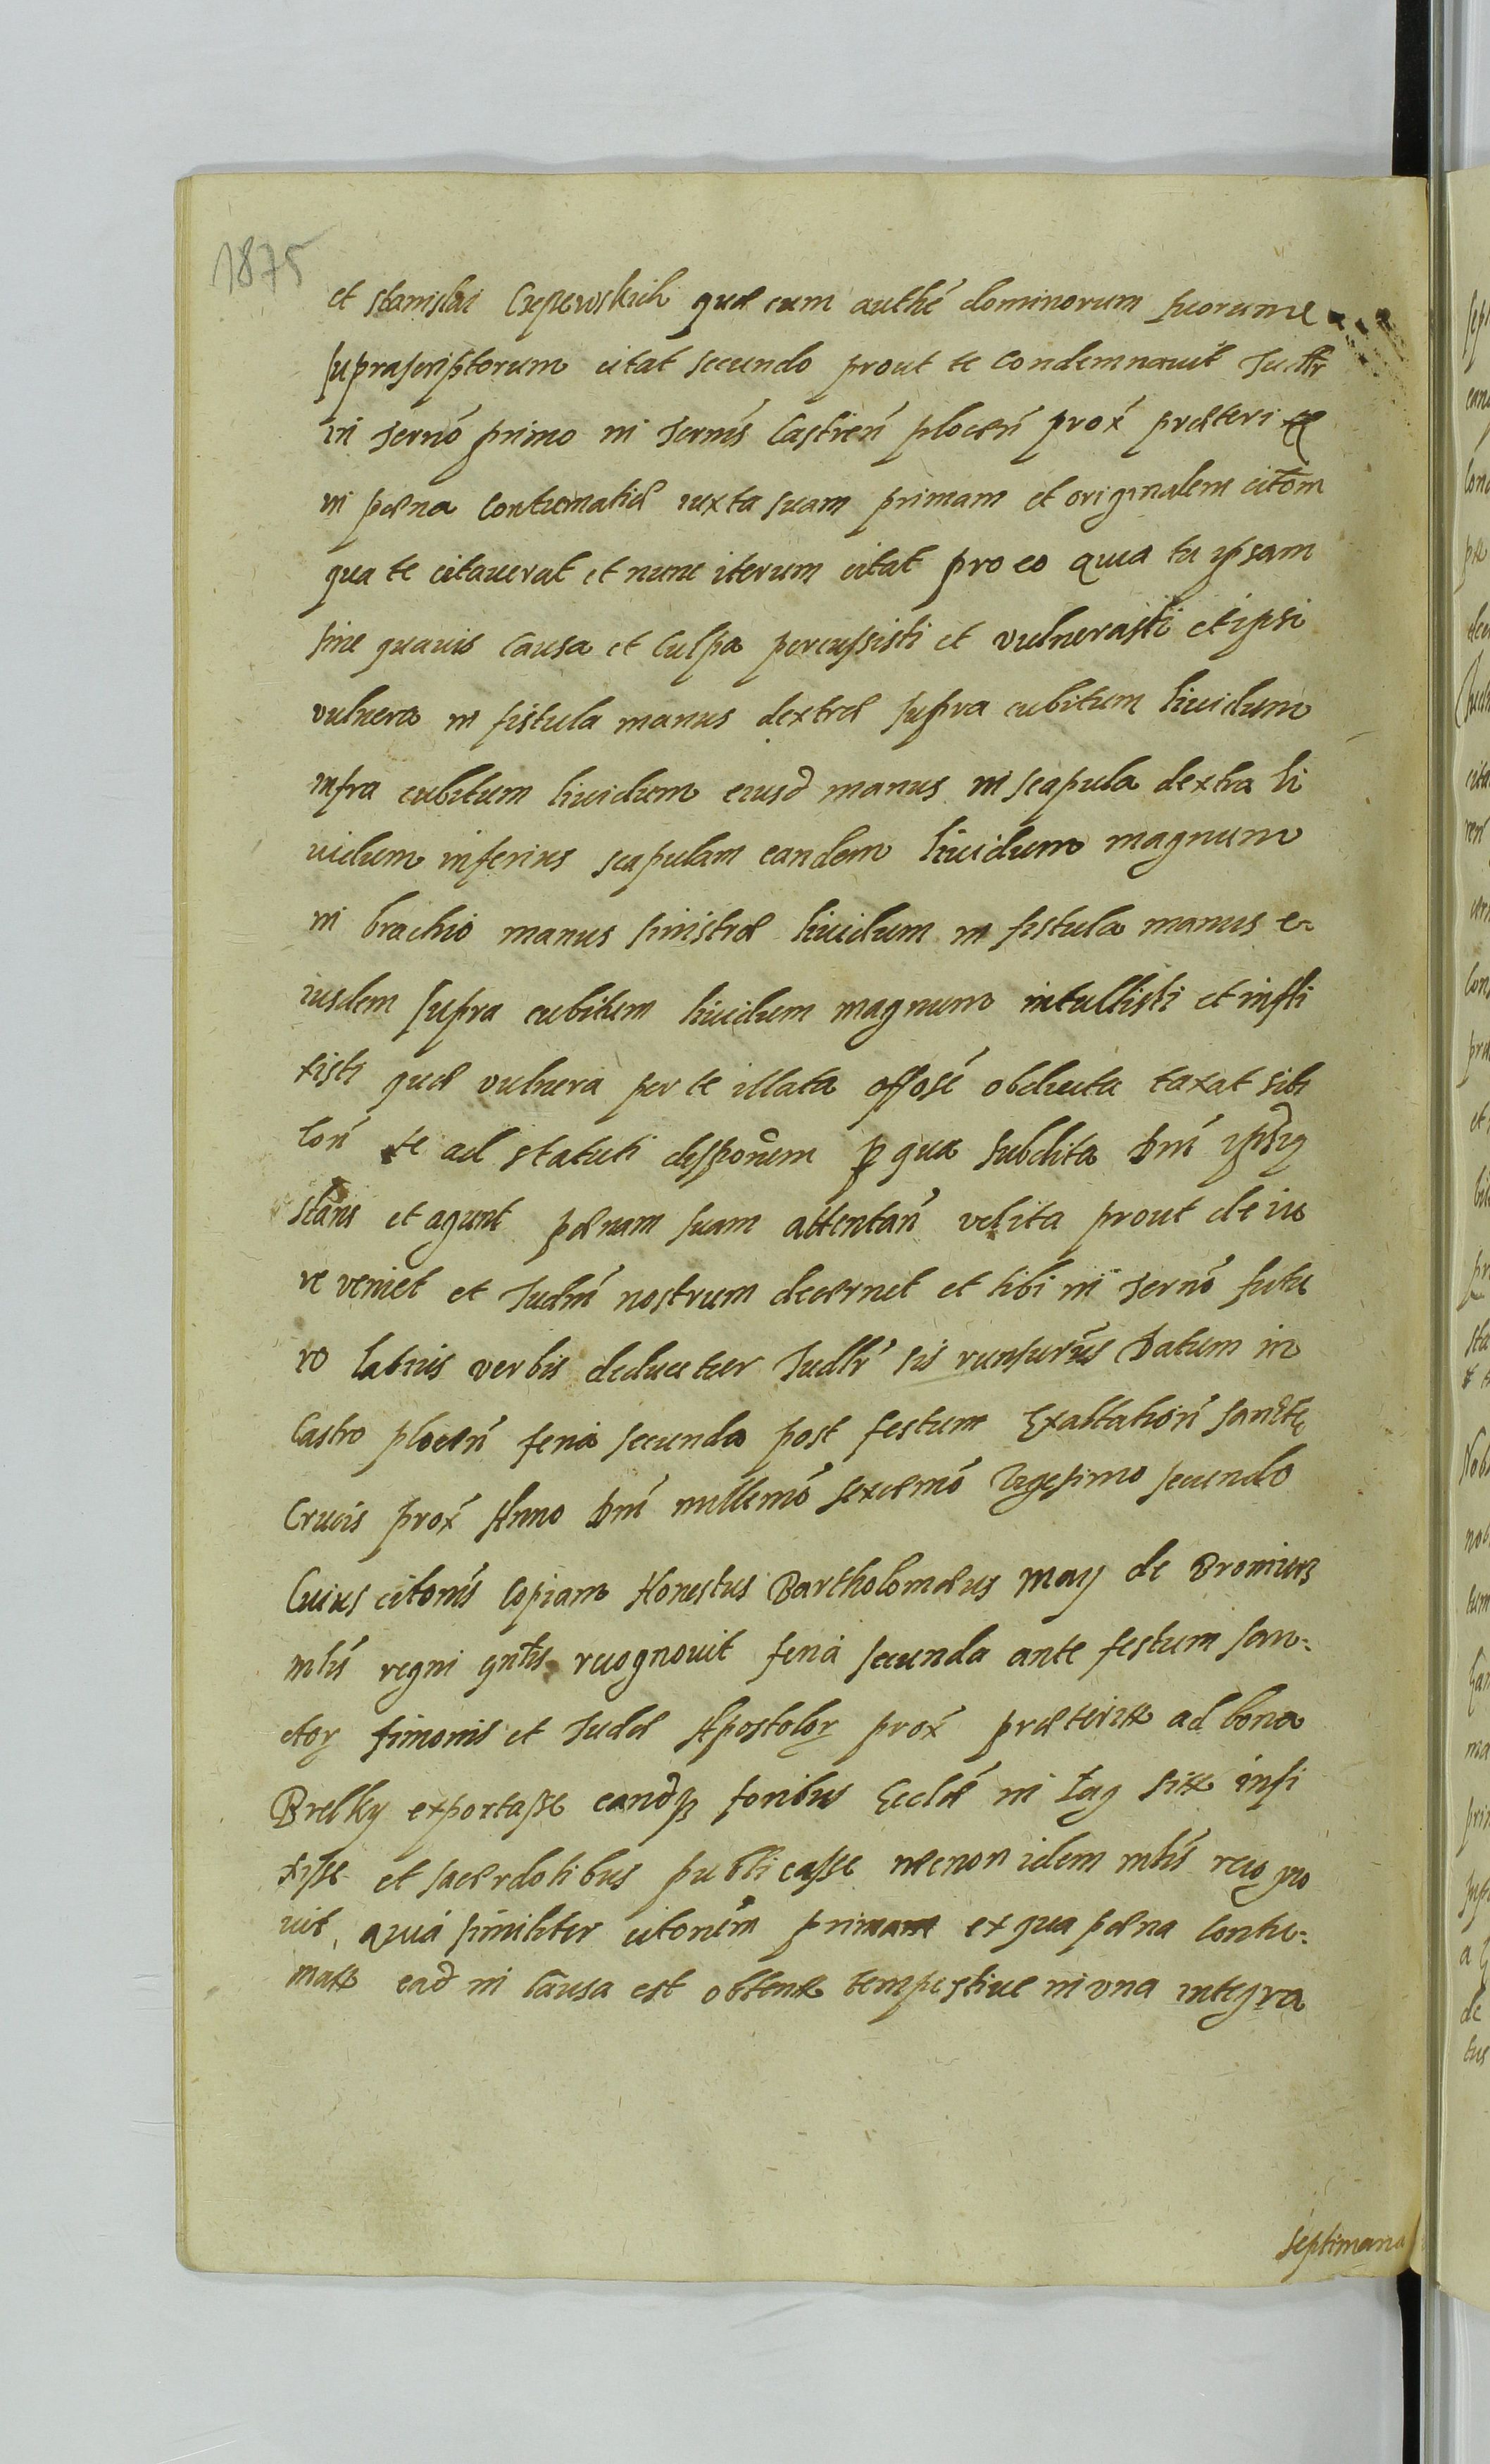 1875
et Stanislai Czepewskich quæ cum authé dominorum suorum
suprascriptorum citat secundo prout te condemnavit Judlr
in Termó primo in Termís Castrień plocen prox́ præteri
in pæna Contumatiæ iuxta suam primam et originalem citom
qua te citauerat et nunc iterum citat pro eo quia tu ipsam
sine quauis Causa et Culpa percussisti et vulnerasti et ipsi
vulnera in fistula manus dextræ supra cubitum liuidum
infra cubitum liuidum eiusd manus in scapula dextra li
uidum inferius scapulam eandem liuidum magnum
in brachio manus sinistræ liuidum in fistula manus e-
iusdem supra cubitum liuidum magnum intullisti et infli
xisti quæ vulnera per te illata offosé obducta taxat sibi
Coń te ad statuti disponem p qua subdita Dní
stans et agunt pænam suam attentań velita prout de iu
re veniet et Judiń nostrum decernet et tibi in Termó futu
ro latius verbis deducetur Judlr sis runsurus Datum in
Castro plocen feria secunda post festum Exaltationí Sanctę
Crucis prox́ Anno Dní millemó sexcemó Vigesimo secundo
Cuius citonís Copiam Honestus Bartholomæus May de Proniewo
mlis regni gntis recognouit feria secunda ante festum san=
ctor Simonis et Judæ Apostolor prox́ præterite ad bona
Brelky exportasse eandq foribus Ecclæ in Łąg site infi
xisse et sacerdotibus publicasse nec non idem mlis recogno
uit, quia similiter citoném primam ex qua pæna Contu=
mate ead in Causa est obtente tempestiue in una integra
septimana